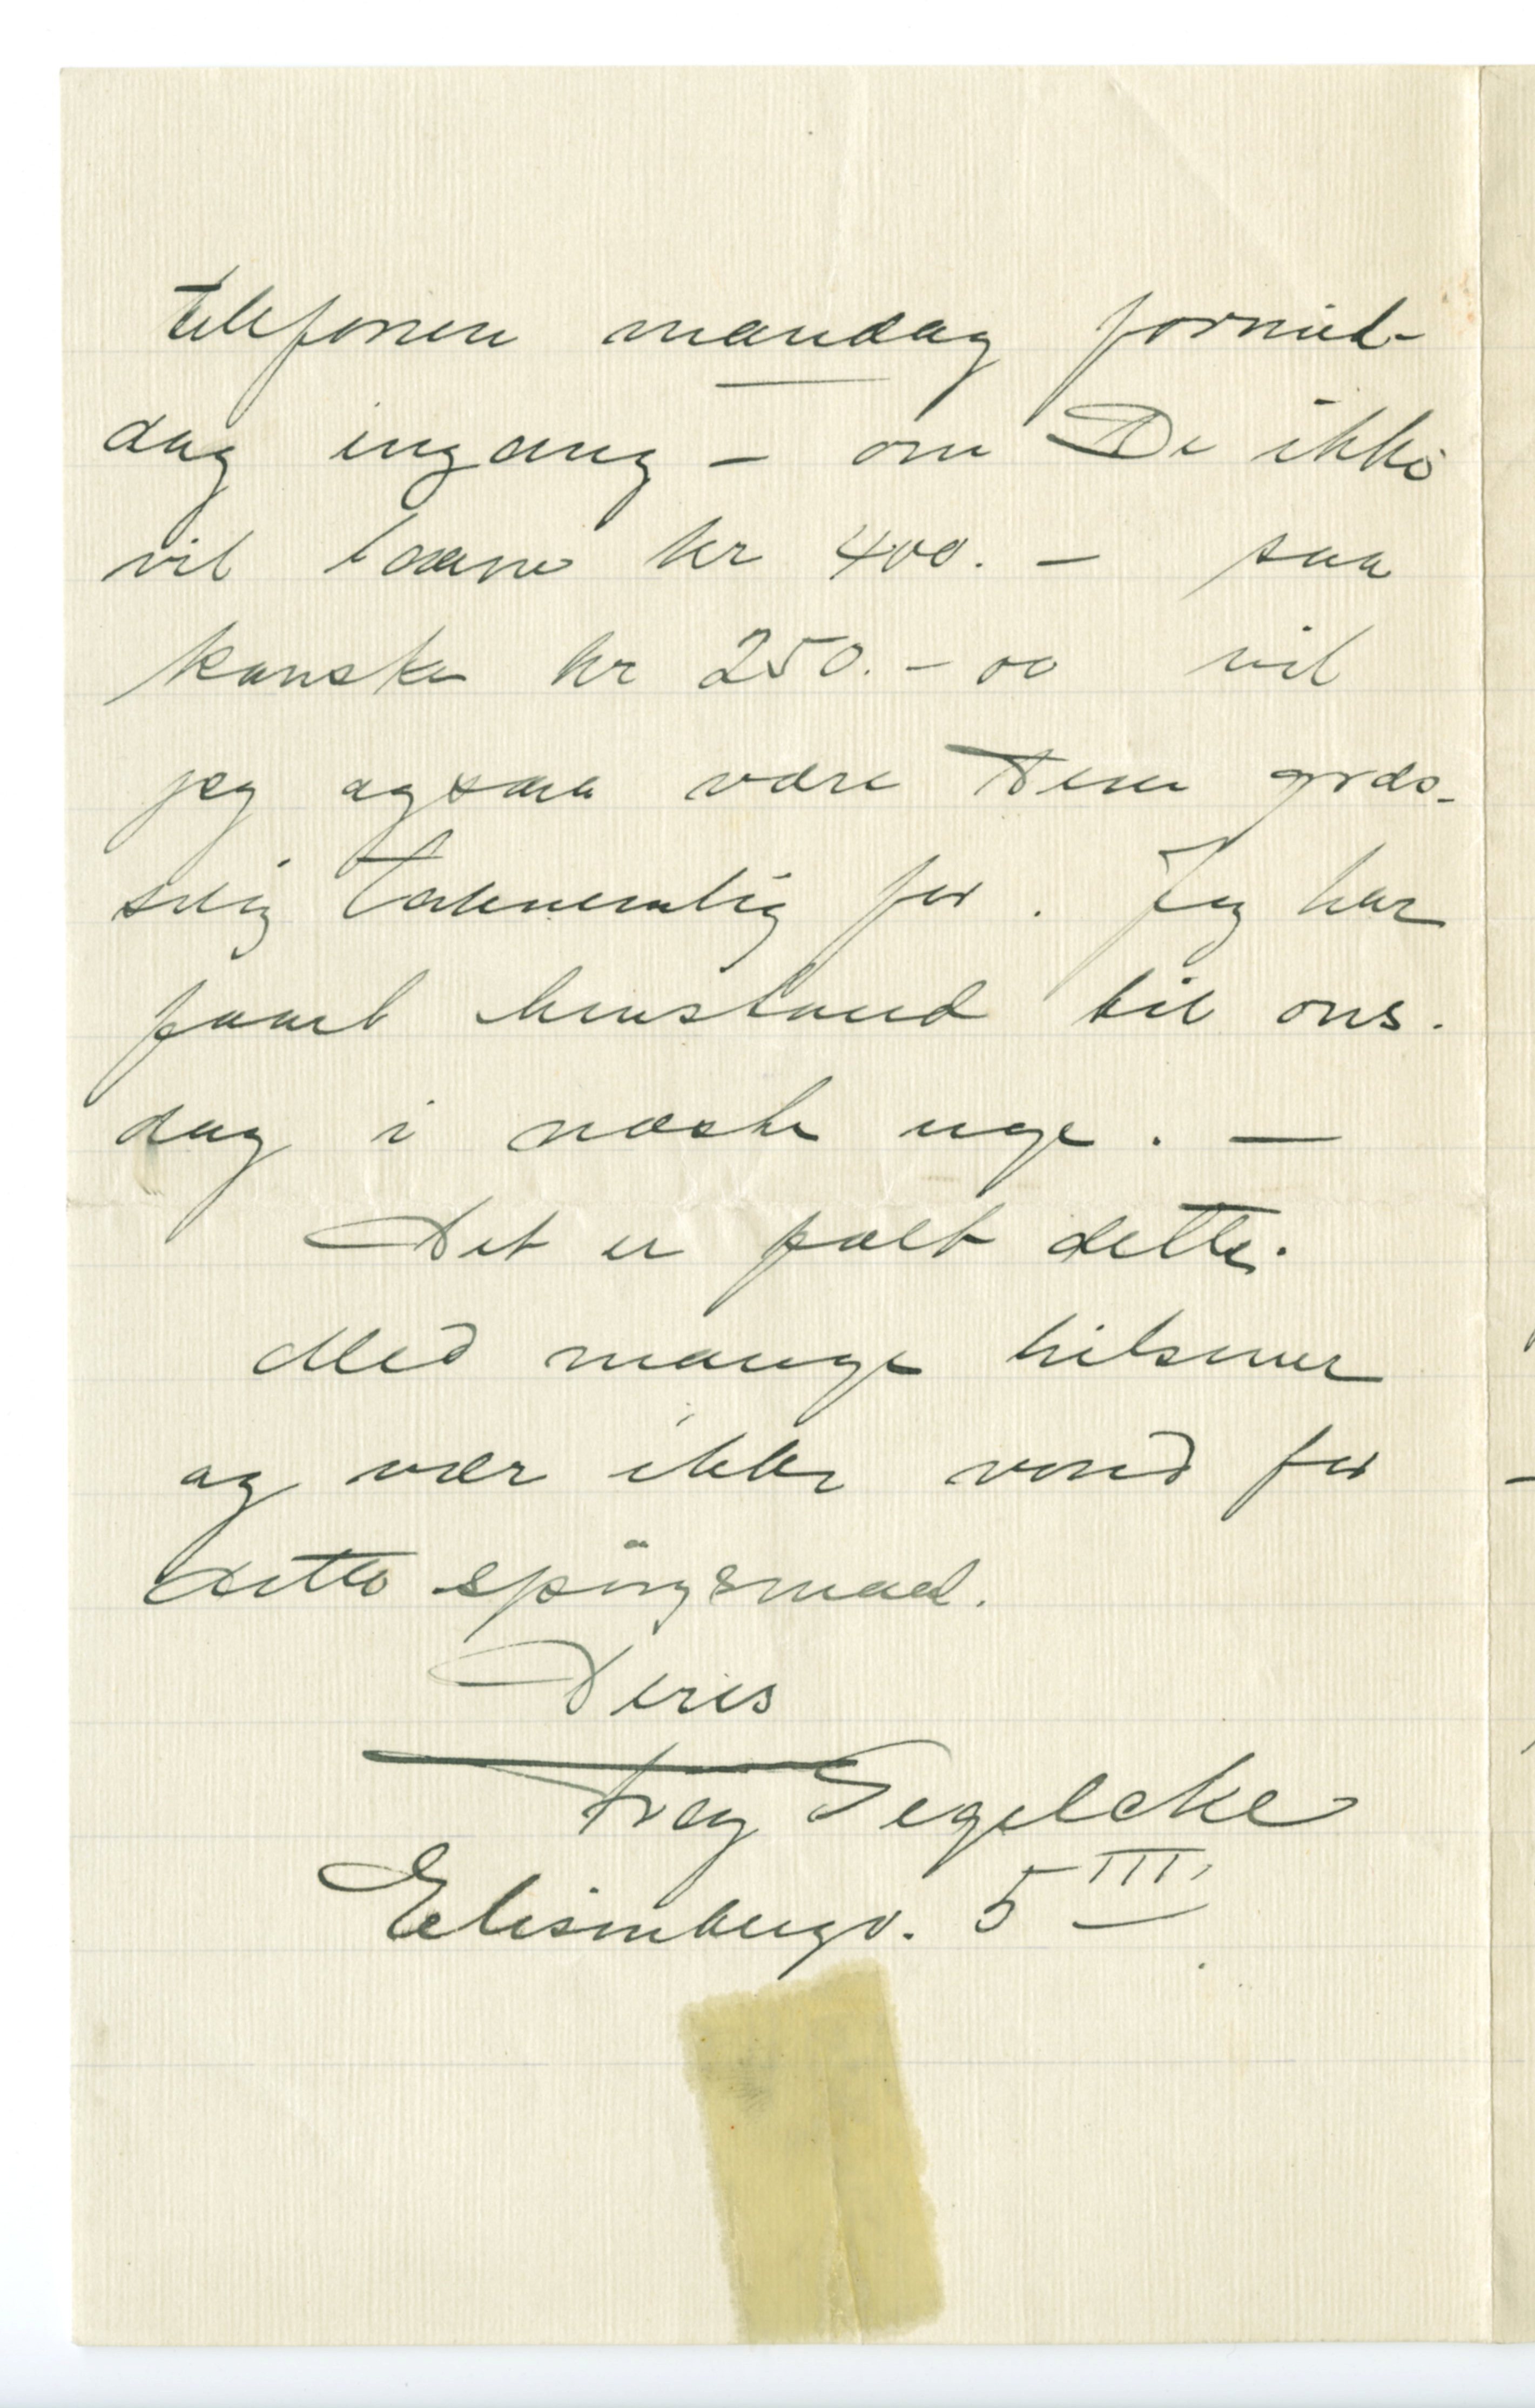 telefonen mandag formid-
dag engang – om De ikke
vil laane kr 400. – saa
kanske kr 250. – oo vil
jeg ogsaa være Dem græs-
selig taknemlig for. Jeg har
faaet henstand til ons.
dag i næste uge. —
Det er fælt dette.
Med mange hilsener
og vær ikke vond for
dette spörgsmaal.
Deres
Tegelcke
Elisenbergv. 5 III,